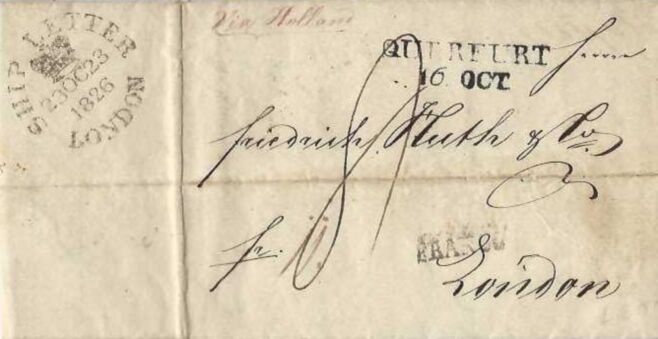 Via Holland
SHIP LETTER
23OC23
1826
LONDON
QUERFURT
16 OCT
Herrn
Friedrich Huth & Co
fr.
FRANCO
London